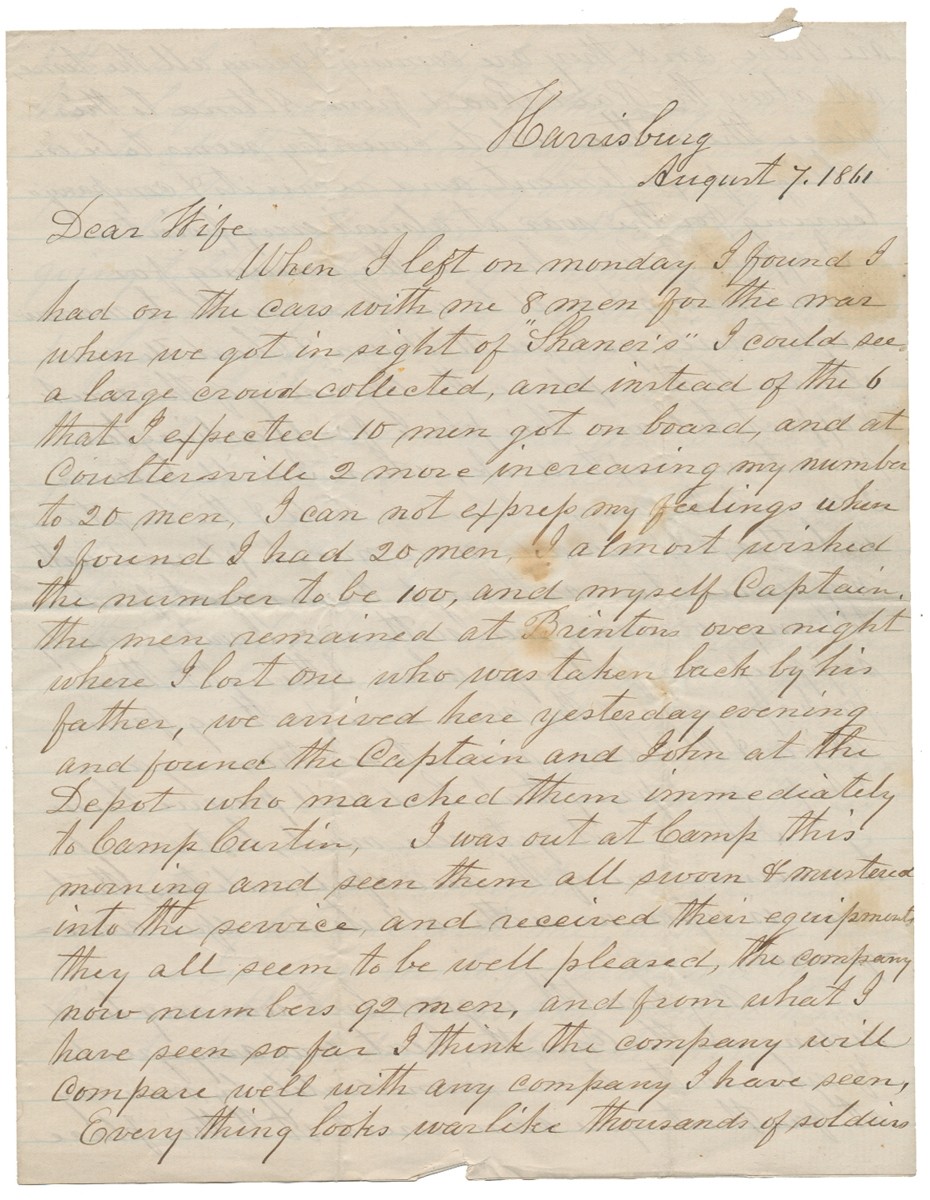 Harrisburg
August 7. 1861
Dear Wife
When I left on monday I found I
had on the cars with me 8 men for the war
when we got in sight of "Shaner's" I could see
a large crowd collected, and instead of the 6
that I expected 10 men got on board, and at
Coultersville 2 more increasing my number
to 20 men, I can not express my feelings when
I found I had 20 men I almost wished
the number to be 100, and myself Captain.
the men remained at Brintons over night
where I lost one who was taken back by his
father, we arrived here yesterday evening
and found the Captain and John at the
Depot who marched them immediately
to Camp Curtin, I was out at Camp this
morning and seen them all sworn & mustered
into the service, and received their equipments
they all seem to be well pleased, the company
now numbers 92 men, and from what I
have seen so far I think the company will
Compare well with any company I have seen,
Every thing looks warlike thousands of soldiers